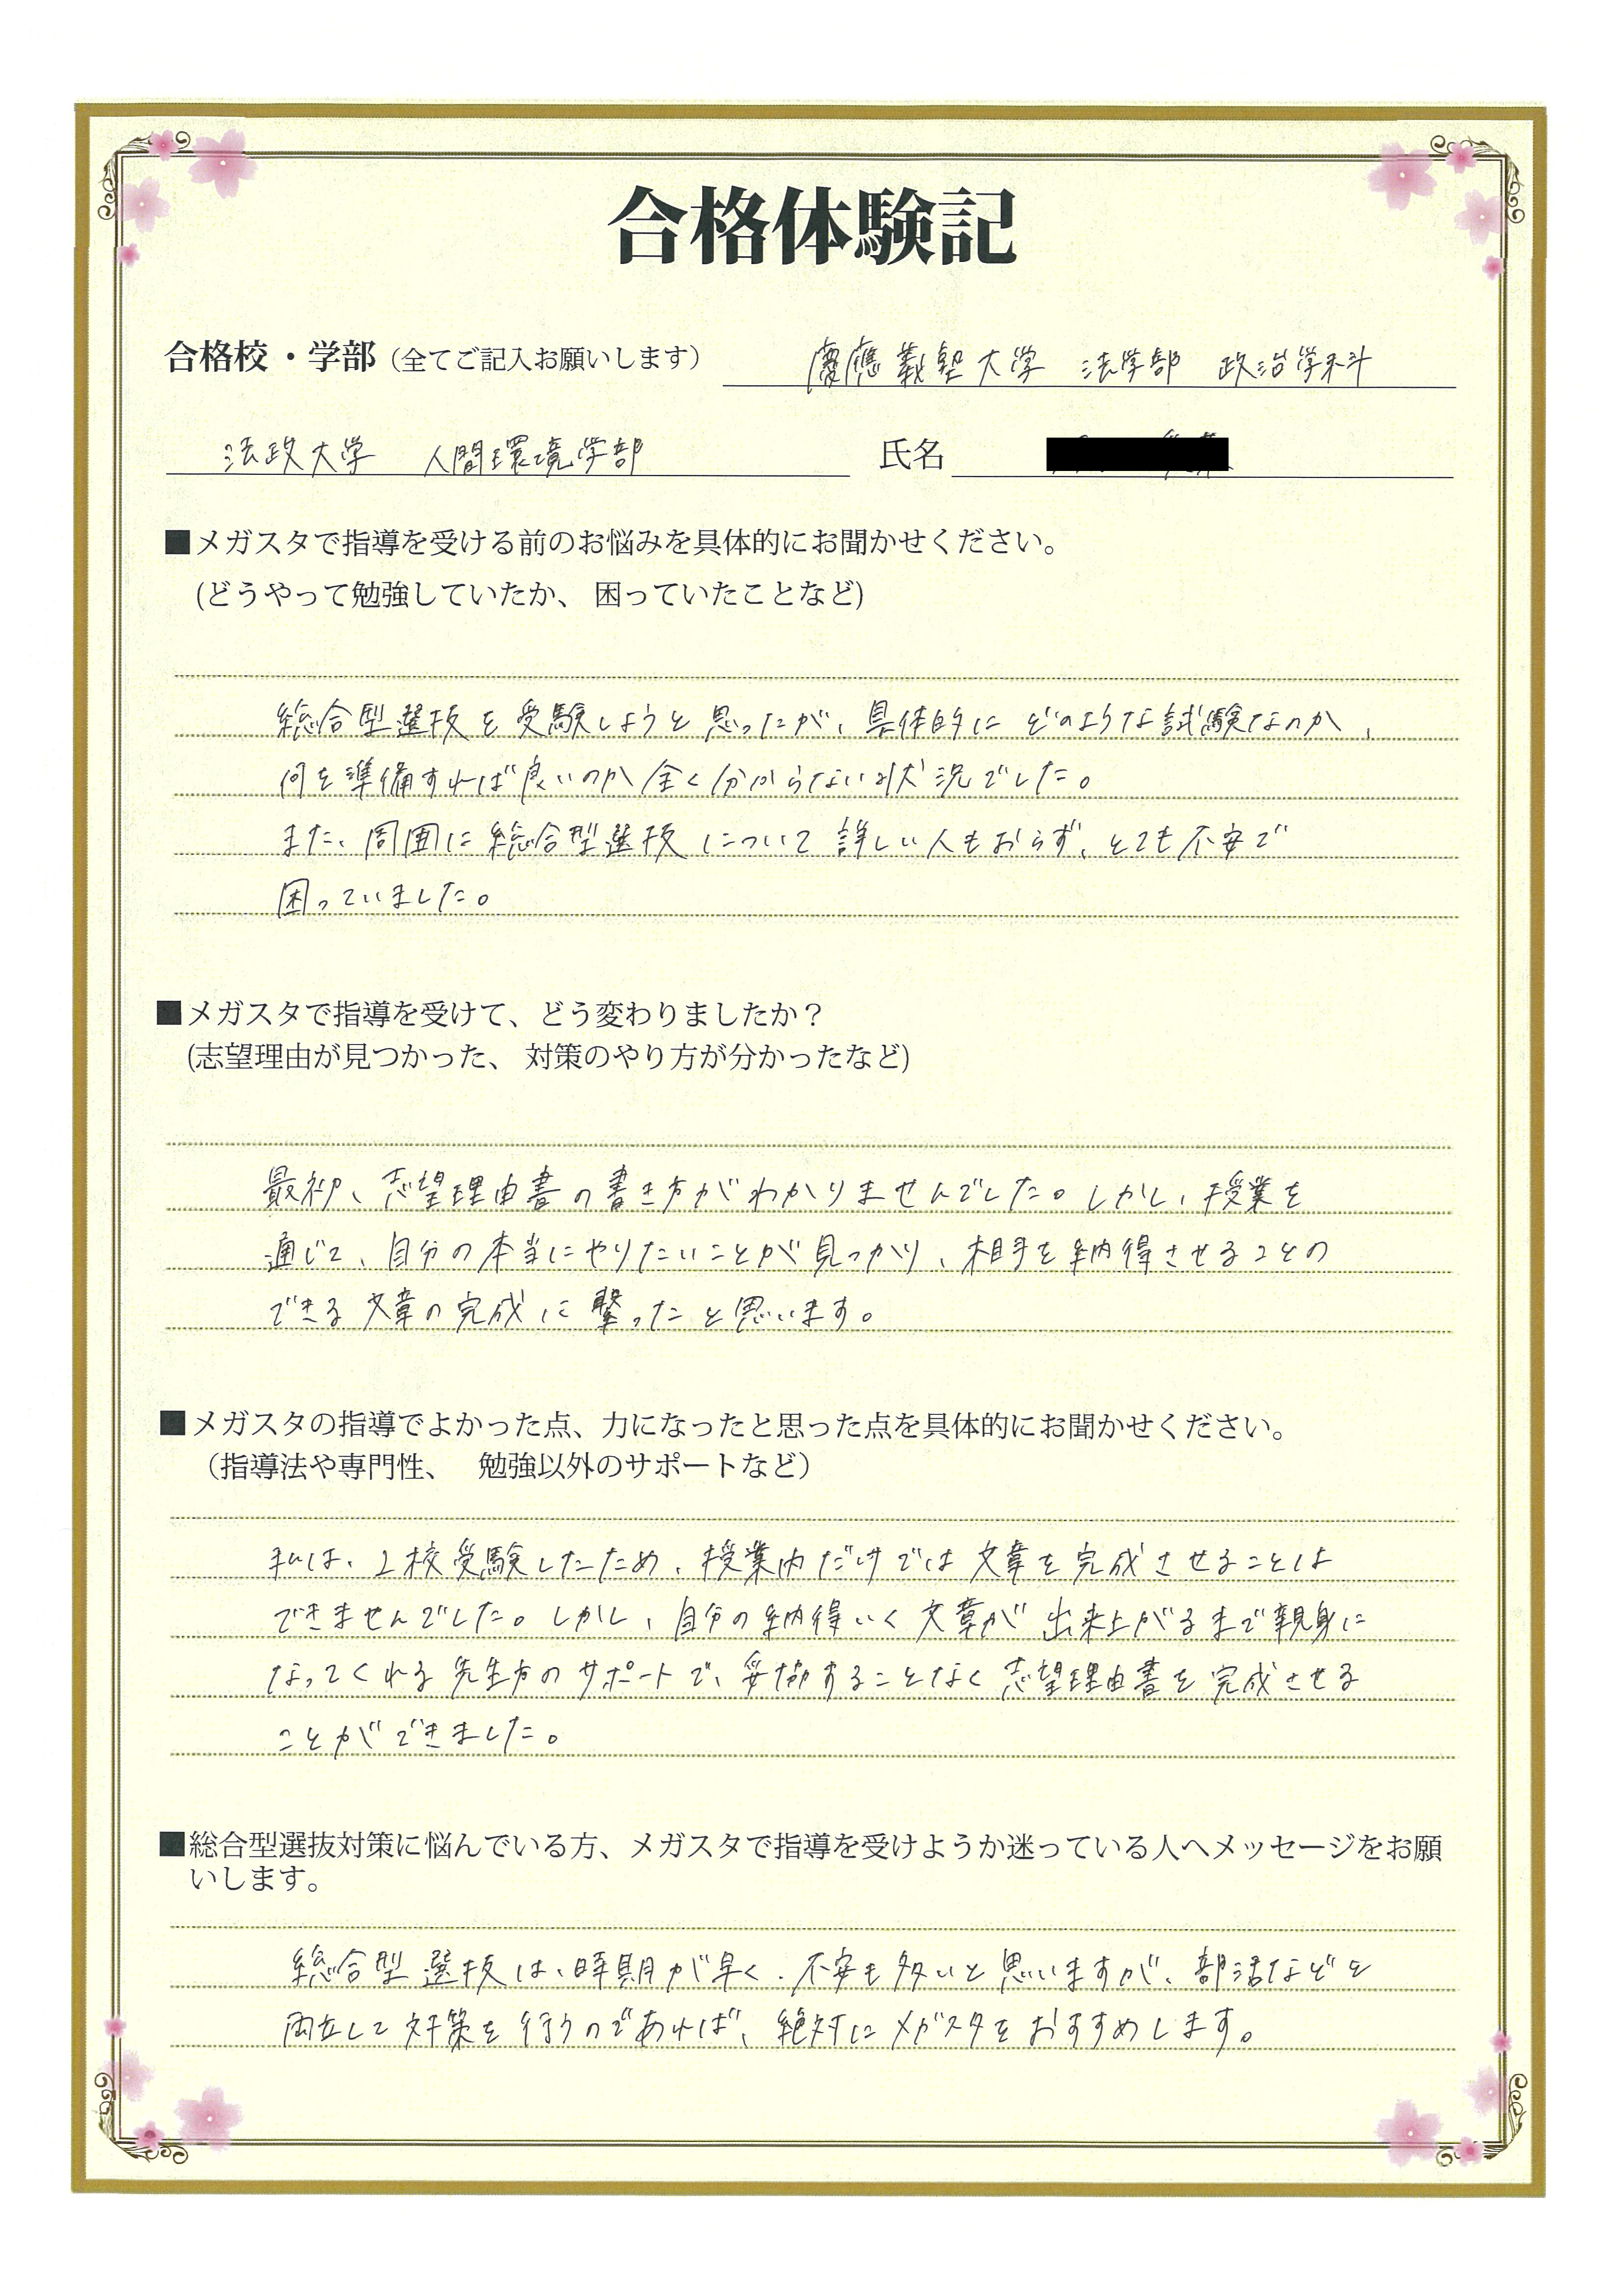 合格体験記
合格校・学部（全てご記入お願いします） 慶應義塾大学 法学部 政治学科
法政大学 人間環境学部 氏名
■メガスタで指導を受ける前のお悩みを具体的にお聞かせください。
(どうやって勉強していたか、 困っていたことなど)
総合型選抜を受験しようと思ったが、具体的にどのような試験なのか、
何を準備すれば良いのか全く分からない状況でした。
また、周囲に総合型選抜について詳しい人もおらず、とても不安で
困っていました。
■メガスタで指導を受けて、どう変わりましたか？
(志望理由が見つかった、 対策のやり方が分かったなど)
最初、志望理由書の書き方がわかりませんでした。しかし、授業を
通じて、自分の本当にやりたいことが見つかり、相手を納得させることの
できる文章の完成に繋ったと思います。
■メガスタの指導でよかった点、力になったと思った点を具体的にお聞かせください。
（指導法や専門性、 勉強以外のサポートなど）
私は、2校受験したため、授業内だけでは文章を完成させることは
できませんでした。しかし、自分の納得いく文章が出来上がるまで親身に
なってくれる先生方のサポートで、妥協することなく志望理由書を完成させる
ことができました。
■総合型選抜対策に悩んでいる方、メガスタで指導を受けようか迷っている人へメッセージをお願
いします。
総合型選抜は、時期が早く、不安も多いと思いますが、部活などを
両立して対策を行うのであれば、絶対にメガスタをおすすめします。